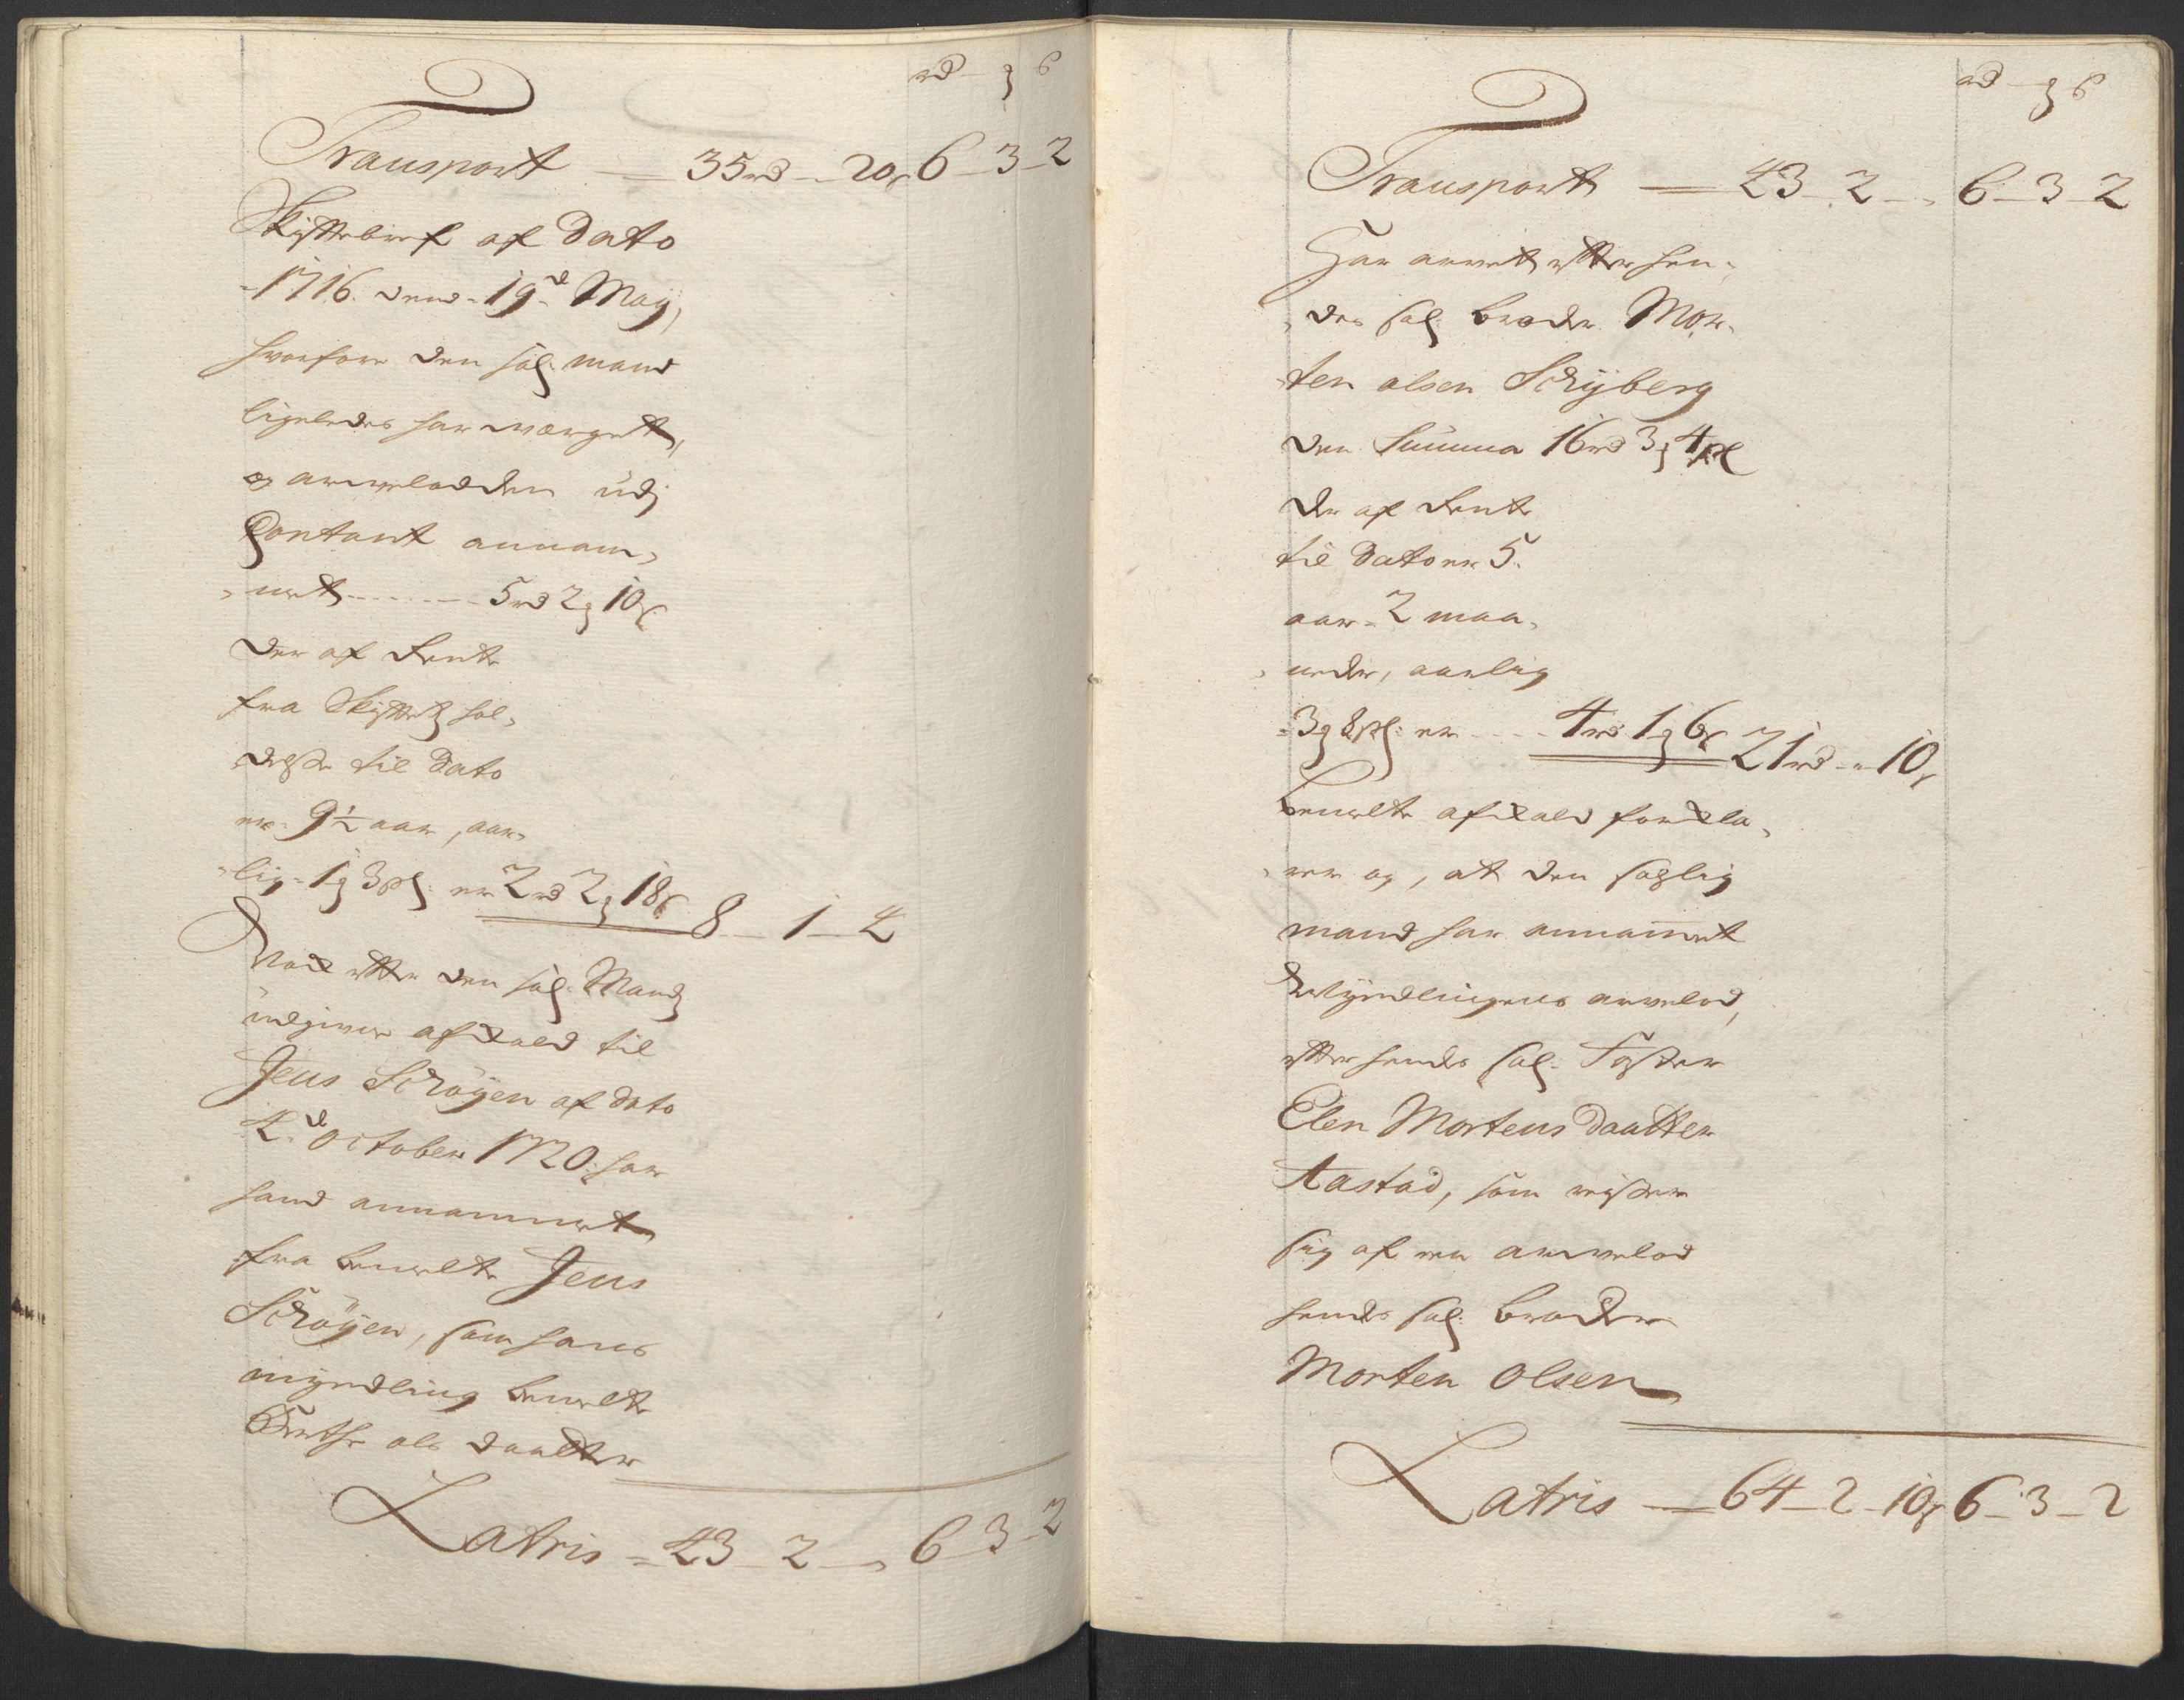 rd - ƺ ß
Transport — 35 rd - 20 ß 6 - 3 - 2
Skiftebref af Dato
1716. dend 19d Maÿ,
hvorfore den sal: mand
ligeledes har verget,
og arvelodden udj
Contant annam,
met - - - 5 rd 2 ƺ 10 ß
Der af Rente
fra Skiftetz hol,
delse til Dato
er 9½ aar, aar,
lig 1 ƺ 3 ß: er 2 rd 2 ƺ 18 ß 8 - 1 - 4
Noch effter den sal: Mandz
udgivne afkald til
Jens Schrøyen af dato
4d October 1720: har
hand annammet
fra bemelte Jens
Schrøyen, som hans
myndling bemelte
Birthe ols daatter
Latris = 43 - 2 - „ 6 - 3 - 2
rd - ƺ ß
Transport — 43 - 2 - „ 6 - 3 - 2
Har arvet effter hen,
des sal: broder Mor,
ten olsen Schÿberg
den Summa 16 rd 3 ƺ 4 ß
Der af Rente
til Dato er 5.
aar 2 maa,
neder, aarlig
3 ƺ 8 ß: er - - - 4 rd 1 ƺ 6 ß 21 rd - „ 10 ß
bemelte afkald forkla,
rer og, at den salig
mand har annam̄et
Myndlingens arvelod,
effter hendes sal: Søster
Elen Mortens daatter
Aastad, som reiser
sig af en arvelod
hendes sal: broder
Morten Olsen
Latris — 64 - 2 - 10 ß 6 - 3 - 2